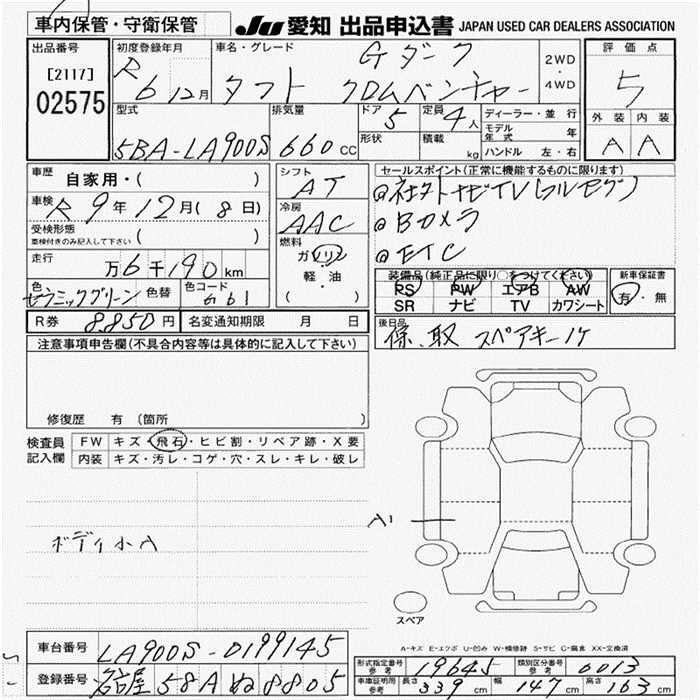 車内保管・守衛保管
JU 愛知 出品申込書 JAPAN USED CAR DEALERS ASSOCIATION
出品番号
[2117]
02575
初度登録年月
R 6 12月
車名・グレード
Gダーク
タフト クロムベンチャー
2WD
・
4WD
評価点
5
外装 内装
A A
型式
5BA-LA900S
排気量
660 CC
ドア 5
形状
定員 4人
積載 kg
ディーラー・並行
モデル年式 年
ハンドル 左・右
車歴 自家用・( )
車検 R 9年 12月 (8日)
受検形態
車検付きのみ記入して下さい ( )
走行
万 6千190km
色 セラミックグリーン 色替
色コード G61
シフト
AT
冷房
AAC
燃料
ガソリン
・
軽・油
( )
セールスポイント(正常に機能するものに限ります)
@社外ナビTV(フルセグ)
@Bカメラ
@ETC
装備品(純正品に限り○をつけてください)
PS PW エアB AW
SR ナビ TV カワシート
新車保証書
有・無
R券 8,850円
名変通知期限 月 日
後日品
保、取 スペアキー1ケ
注意事項申告欄(不具合内容等は具体的に記入して下さい)
修復歴 有(箇所 )
検査員記入欄
FW キズ・飛石・ヒビ割・リペア跡・X要
内装 キズ・汚レ・コゲ・穴・スレ・キレ・破レ
ボディ小A
A1
スペア
A-キズ E-エクボ U-凹み W-補修跡 S-サビ C-腐食 XX-交換済
車台番号 LA900S-0199145
登録番号 名古屋 58A ぬ8805
形式指定番号 参考 19645
類別区分番号 参考 0013
車庫証明用 参考 長さ 339cm 幅 147cm 高さ 163cm